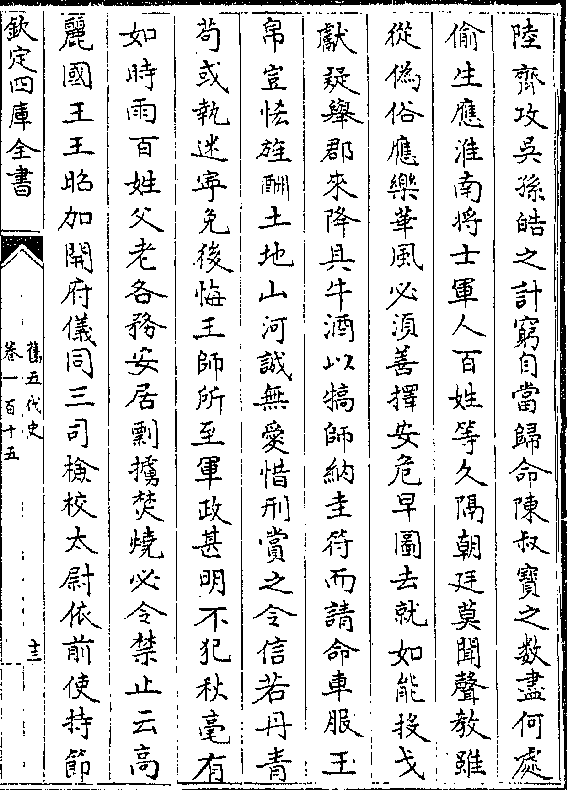 陸齊攻吳孫皓之計窮自當歸命陳叔寶之数盡何處
偷生應淮南将士軍人百姓等久隔朝廷莫聞聲教雖
從偽俗應樂華風必須善擇安危早圖去就如能投戈
獻疑舉郡來降具牛酒以犒師納圭符而請命車服玉
帛豈恡旌酬土地山河誠無愛惜刑賞之令信若丹青
茍或執迷寜免後悔王師所至軍政甚明不犯秋毫有
如時雨百姓父老各務安居剽擄焚燒必令禁止云高
麗國王王昭加開府儀同三司檢校太尉依前使持節
欽定四庫全書
舊五代史
卷一百十五
十三